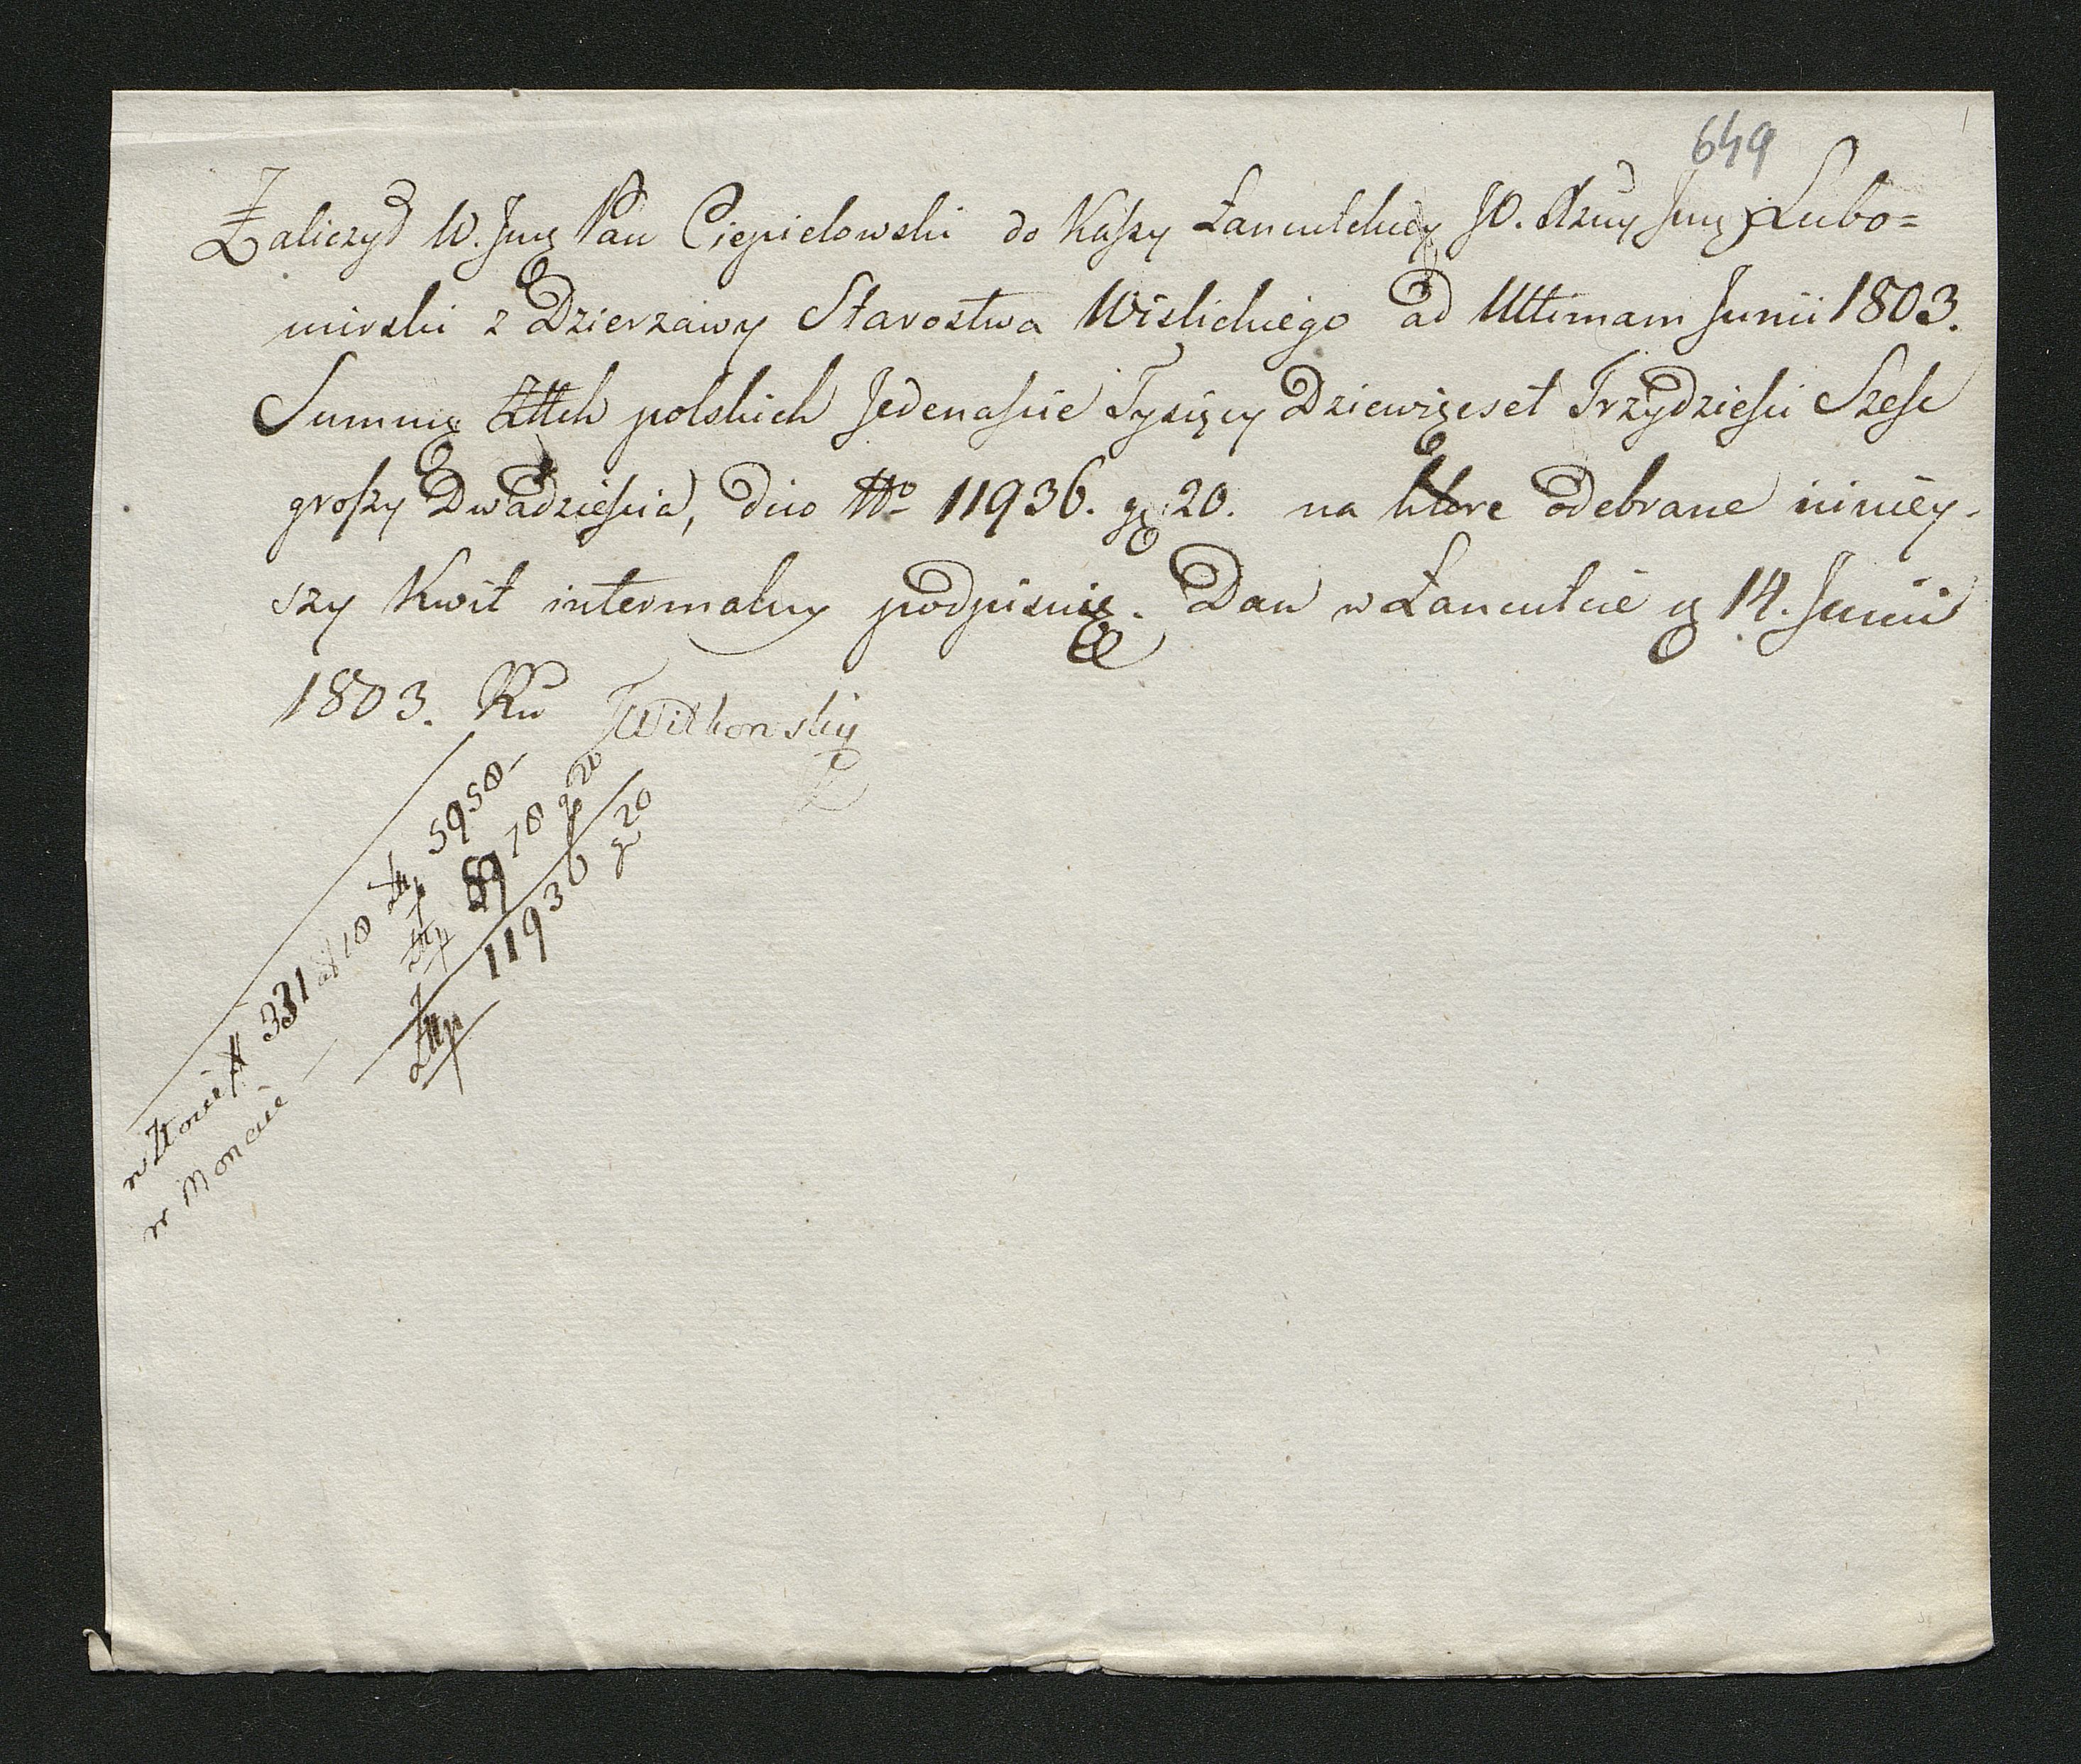 649
Zaliczył W. Jmę Pan Ciepielowski do Kaſsy Łancutckiey JO. Xzny Jmę Lubo=
mirski z Dzierzawy Starostwa Wislickiego ad Ultimam Junii 1803.
Summę Złłch polskich Jedenaſcie Tysięcy Dziewięcset Trzydzieſci Szeſc
groſzy Dwadzieſcia, dico No 11936. gę 20. na ktore odebrane niniey.
szy Kwit intermalny podpisuię. Dan w Łancucie g 14. Junii
1803. Ru
JWitkowski
w Złocie # 331 a 18 Złp 5958
w Monecie Złp 5978 g 20
Złp 11936 g 20